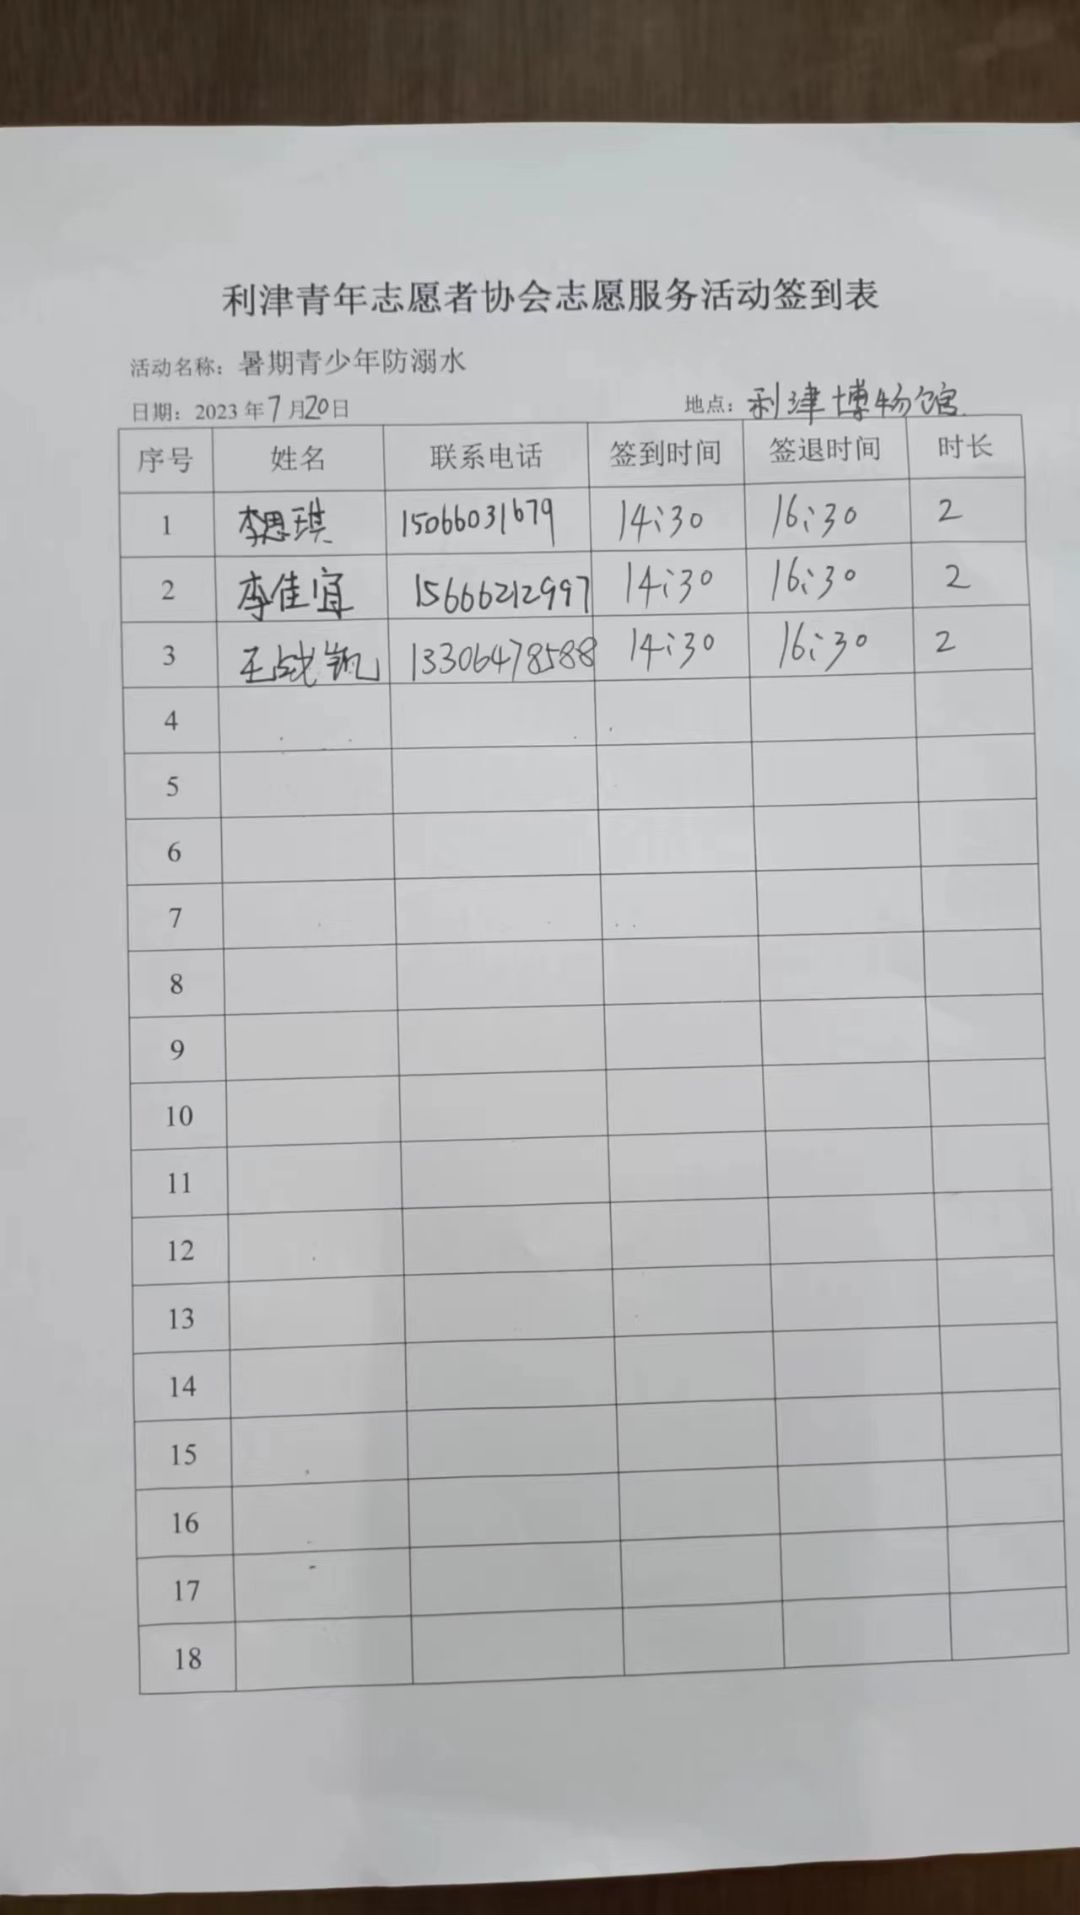 利津青年志愿者协会志愿服务活动签到表
活动名称：暑期青少年防溺水
日期：2023年7月20日 地点：利津博物馆
序号 姓名 联系电话 签到时间 签退时间 时长
1 李思琪 15066031679 14:30 16:30 2
2 李佳宜 15666212997 14:30 16:30 2
3 王战凯 13306478588 14:30 16:30 2
4
5
6
7
8
9
10
11
12
13
14
15
16
17
18